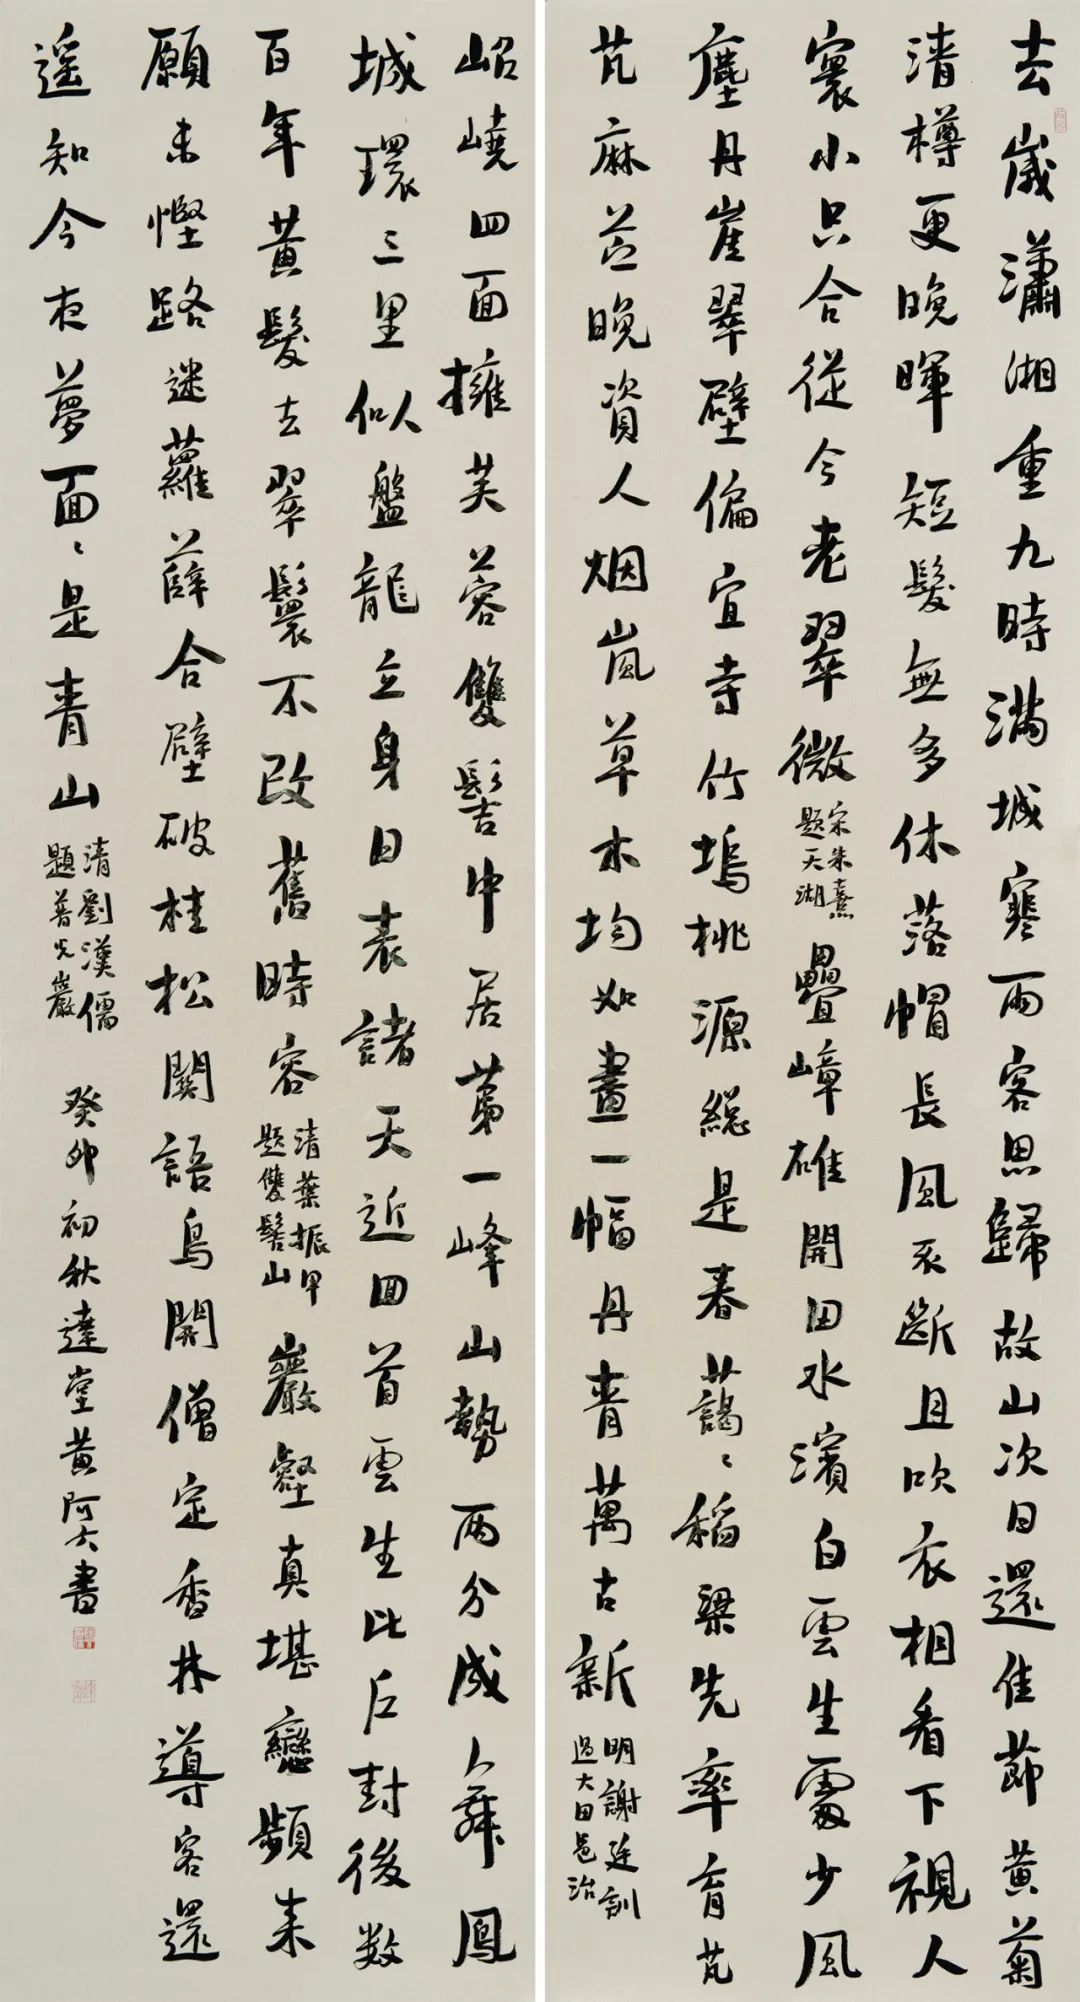 去歲瀟湘重九時滿城寒雨客思歸故山次日還佳節黃菊
清樽更晚暉短髮無多休落帽長風不斷且吹衣相看下視人
寰小只合從今老翠微
宋朱熹
題天湖
疊嶂雄開田水濱白雲生處少風
塵丹崖翠壁偏宜寺竹塢桃源總是春藹〻稻粱先率育芃
芃麻苎晚資人烟嵐草木均如畫一幅丹青萬古新
明謝廷訓
過大田邑治
岹嶢四面擁芙蓉雙髻中居第一峰山勢兩分成舞鳳
城環三里似盤龍立身日表諸天近回首雲生比户封後数
百年黃髮去翠鬟不改舊時容
清葉振甲
題雙髻山
巖壑真堪戀頻來
願未慳路迷蘿薜合壁破桂松關語鳥開僧定香林導客還
遥知今夜夢面〻是青山
清劉漢儒
題普光巖
癸卯初秋達堂黃阿六書